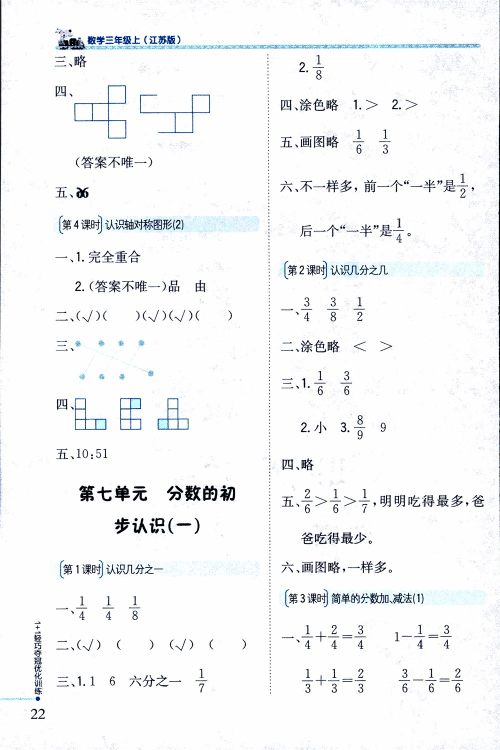 数学三年级上(江苏版)
三、略
四、
(答案不唯一)
五、
第4课时 认识轴对称图形(2)
一、1. 完全重合
2. (答案不唯一)品 由
二、(√)( )(√)(√)( )
三、
四、
五、10:51
第七单元 分数的初
步认识(一)
第1课时 认识几分之一
一、1/4 1/4 1/8
二、(√) ( ) (√) ( )
三、1. 1 6 六分之一 1/7
2. 1/8
四、涂色略 1. > 2. >
五、画图略 1/6 1/3
六、不一样多,前一个“一半”是1/2,
后一个“一半”是1/4。
第2课时 认识几分之几
一、3/4 3/8 1/2
二、涂色略 < >
三、1. 1/6 3/6
2. 小 3. 8/9 9
四、略
五、2/6>1/6>1/7,明明吃得最多,爸
爸吃得最少。
六、画图略,一样多。
第3课时 简单的分数加、减法(1)
一、1/4+2/4=3/4 1-1/4=3/4
1/3+1/3=2/3 3/6-1/6=2/6
1+1轻巧夺冠优化训练
22